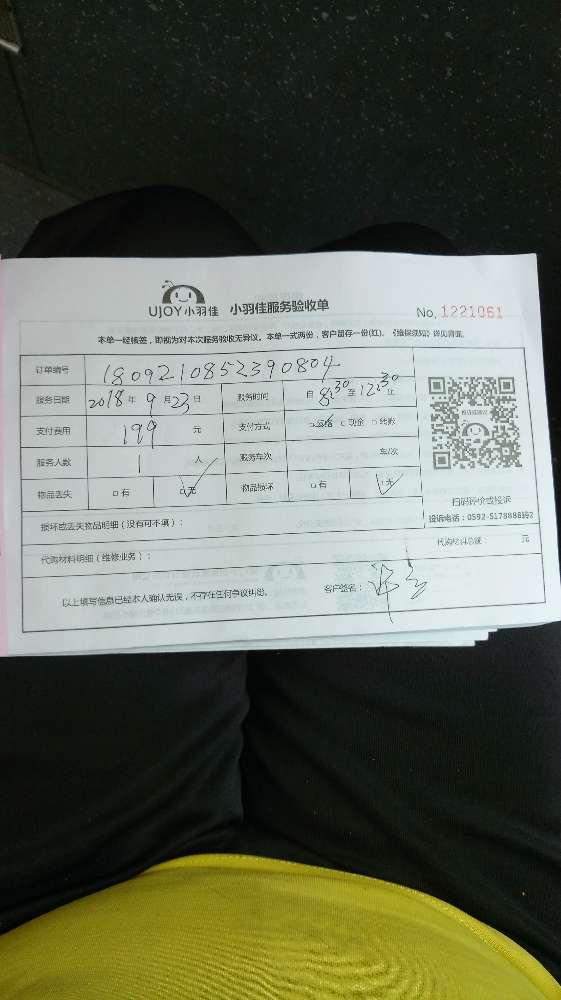 UJOY小羽佳 小羽佳服务验收单 No. 1221061
本单一经核签，即视为对本次服务验收无异议。本单一式两份，客户留存一份(红)。《维保须知》详见背面。
订单编号 1809210852390804
服务日期 2018年9月23日 服务时间 自8:30至12:30止
支付费用 199 元 支付方式 □网络 □现金 □转账
服务人数 1 人 服务车次 车/次
物品丢失 □有 □无 物品损坏 □有 □无
扫码评价或投诉
投诉电话：0592-5178888转2
损坏或丢失物品明细（没有可不填）：
代购材料明细（维修业务）： 代购材料总额 元
以上填写信息已经本人确认无误，不存在任何争议纠纷。 客户签名：